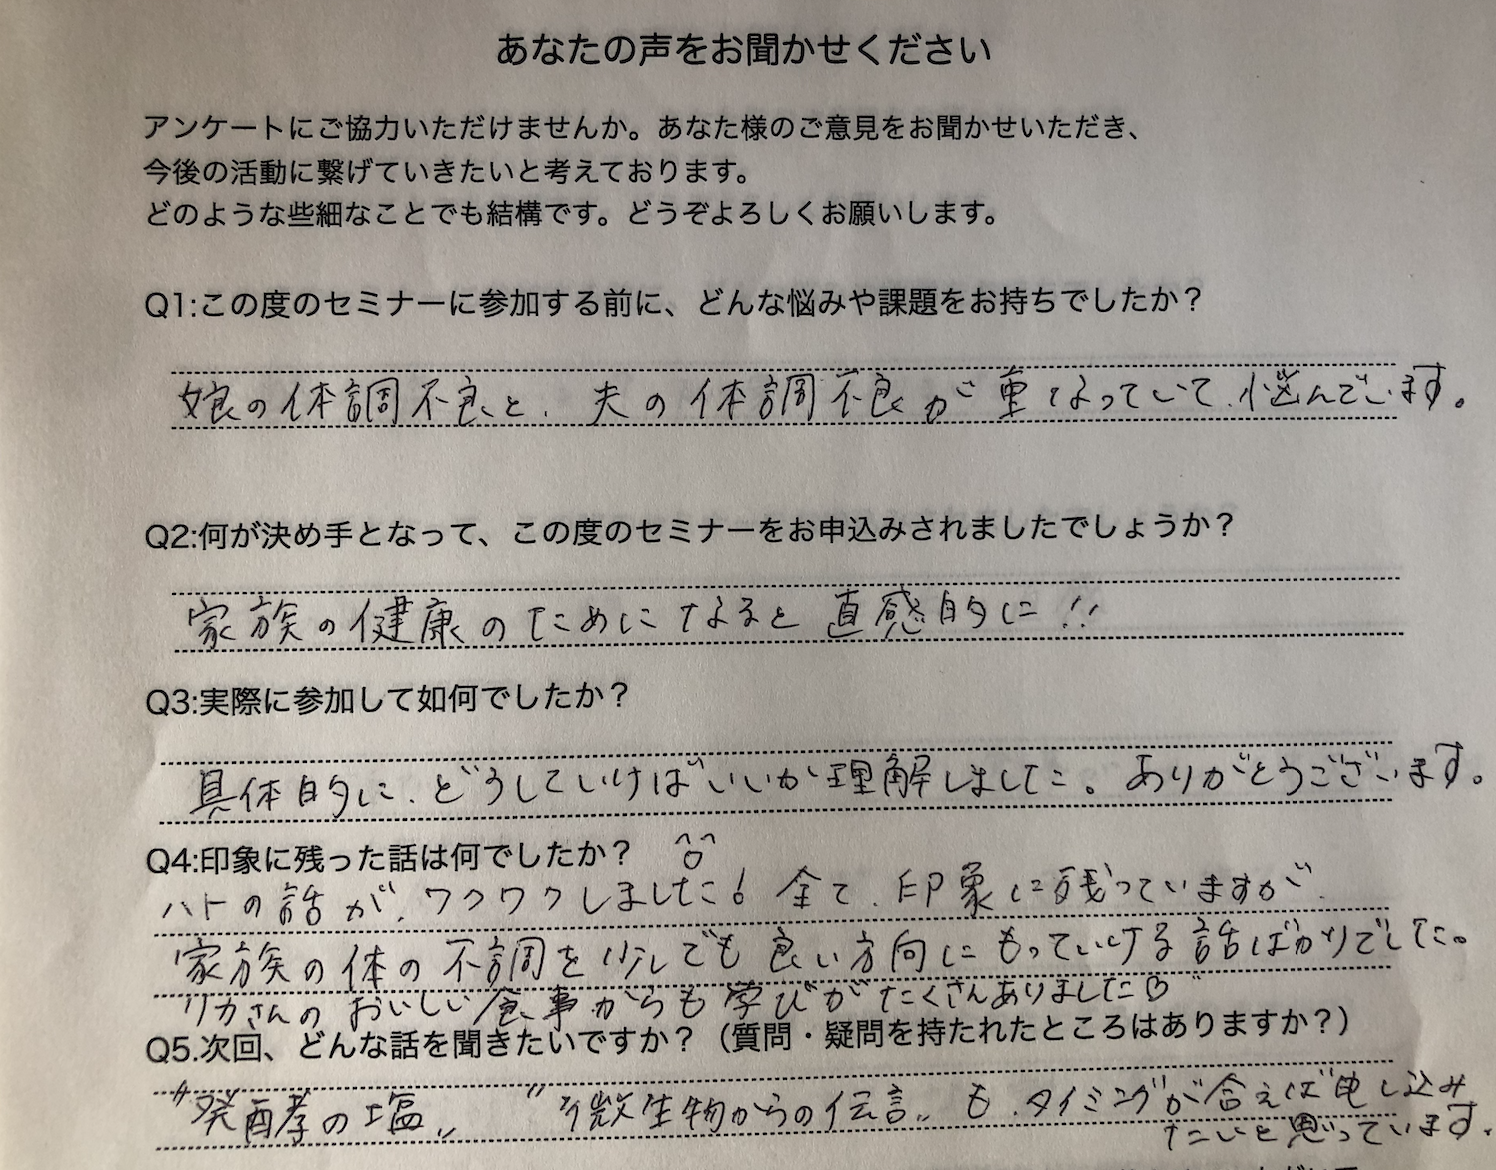 あなたの声をお聞かせください
アンケートにご協力いただけませんか。あなた様のご意見をお聞かせいただき、
今後の活動に繋げていきたいと考えております。
どのような些細なことでも結構です。どうぞよろしくお願いします。
Q1:この度のセミナーに参加する前に、どんな悩みや課題をお持ちでしたか？
娘の体調不良と、夫の体調不良が重なっていて、悩んでいます。
Q2:何が決め手となって、この度のセミナーをお申込みされましたでしょうか？
家族の健康のためになると直感的に!!
Q3:実際に参加して如何でしたか？
具体的に、どうしていけばいいか理解しました。ありがとうございます。
Q4:印象に残った話は何でしたか？
ハトの話が、ワクワクしました! 全て、印象に残っていますが、
家族の体の不調を少しでも良い方向にもっていける話ばかりでした。
リカさんのおいしい食事からも学びがたくさんありました♡
Q5.次回、どんな話を聞きたいですか？（質問・疑問を持たれたところはありますか？）
"発酵の塩" "微生物からの伝言" も、タイミングが合えば申し込み
たいと思っています。